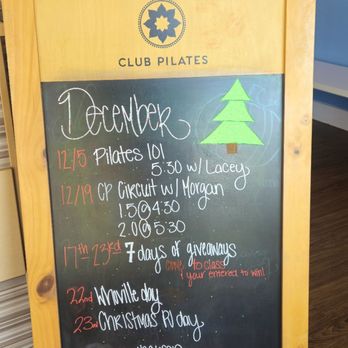 CLUB PILATES
December
12/5 Pilates 101
5:30 w/ Lacey
12/19 CP Circuit w/ Morgan
1.5@4:30
2.0@5:30
17th-23rd 7 days of giveaways
come to class
& your entered to win!
22nd Whoville day
23rd Christmas PJ day